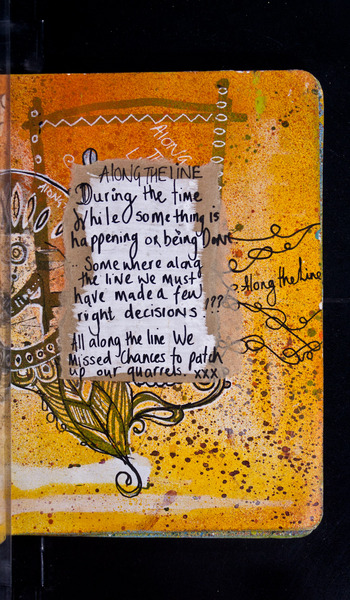 ALONG
ALONG
ALONG THE LINE
During the time
While something is
happening or being Done
Somewhere along
the line we must
have made a few ???
right decisions!
All along the line We
Missed chances to patch
up our quarrels. xxx
Along the Line